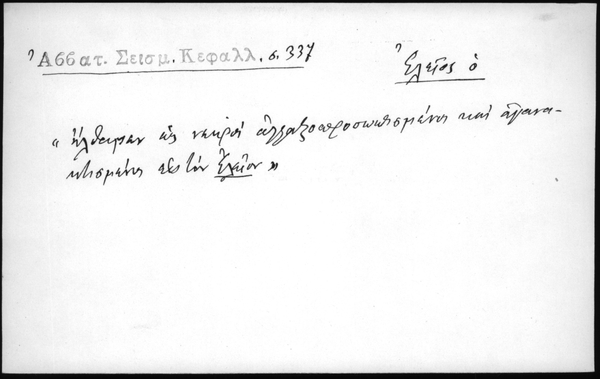 Ἀββατ. Σεισμ. Κεφαλλ. σ. 337
Ἐλεῖος ὁ
« ἤλθασιν ὡς νεκροὶ ἀλλαξοπροσωπισμένοι καὶ ἀγανα-
κτισμένοι εἰς τὸν Ἐλεῖον »